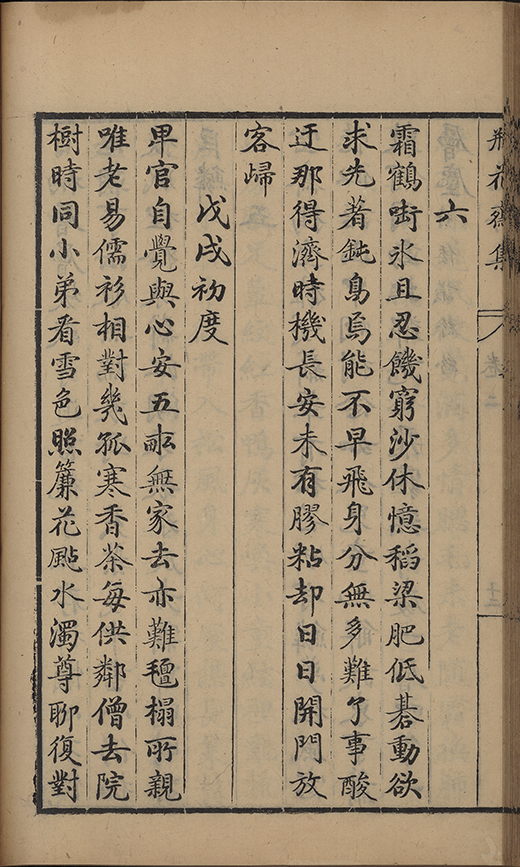 瓶花齋集 卷二 十三
六
霜鶴啣氷且忍饑窮沙休憶稻粱肥低碁動欲
求先著鈍鳥焉能不早飛身分無多難了事酸
迂那得濟時機長安未有膠粘却日日開門放
客歸
戊戌初度
卑官自覺與心安五畝無家去亦難氊榻所親
唯老易儒衫相對幾孤寒香茶每供鄰僧去院
樹時同小弟看雪色照簾花颭水濁尊聊復對